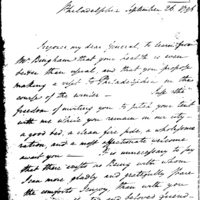 Philadelphia September 26. 1798
I rejoice my dear General, to learn from
Mr Bingham that your health is even
better than usual, and that you propose
making a visit to Philadelphia in the
course of the winter. Take the
freedom of inviting you to pitch your tent
with me while you remain in our city
a good bed, a clean fire side, a wholesome
ration, and a most affectionate welcome
await you. It is unnecessary to say
that there exists no Being with whom
I can more gladly and gratefully share
the comforts I enjoy, than with you
and beloved friend